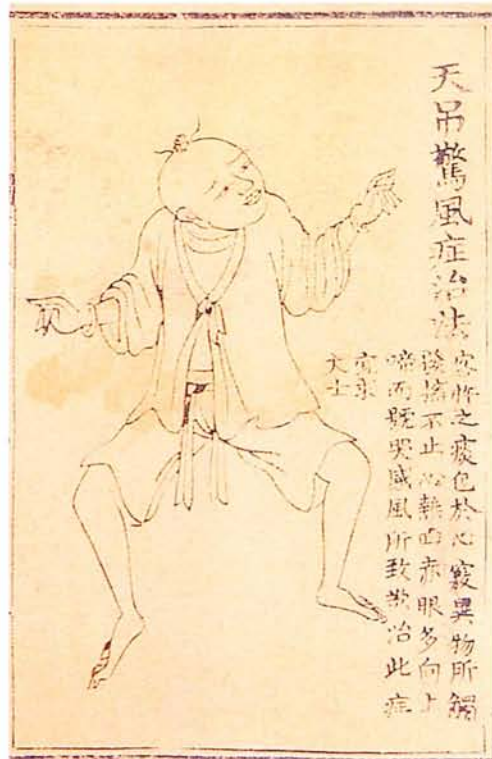 天吊驚風症治法
之痰包於心竅異物所觸
搐不止心熱面赤眼多向上
啼而號哭感風所致欲治此症